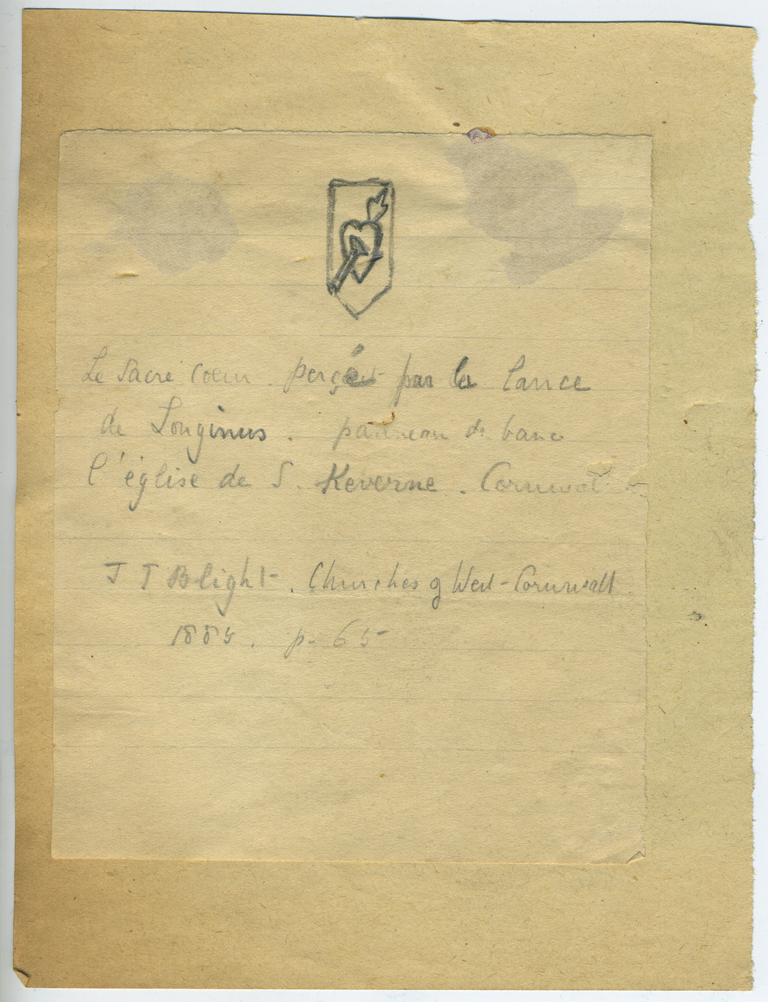 Le Sacré Coeur. percé par la lance
de Longinus. panneau de banc
l'église de S. Keverne. Cornwall
J T Blight. Churches of West-Cornwall.
1885. p. 65